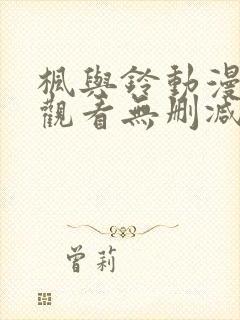 楓與鈴動漫
觀看無刪減
曾莉